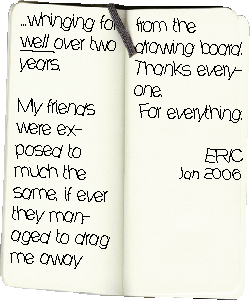 ...whinging for
well over two
years.
My friends
were ex-
posed to
much the
same, if ever
they man-
aged to drag
me away
from the
drawing board.
Thanks every-
one.
For everything.
ERIC
Jan 2006